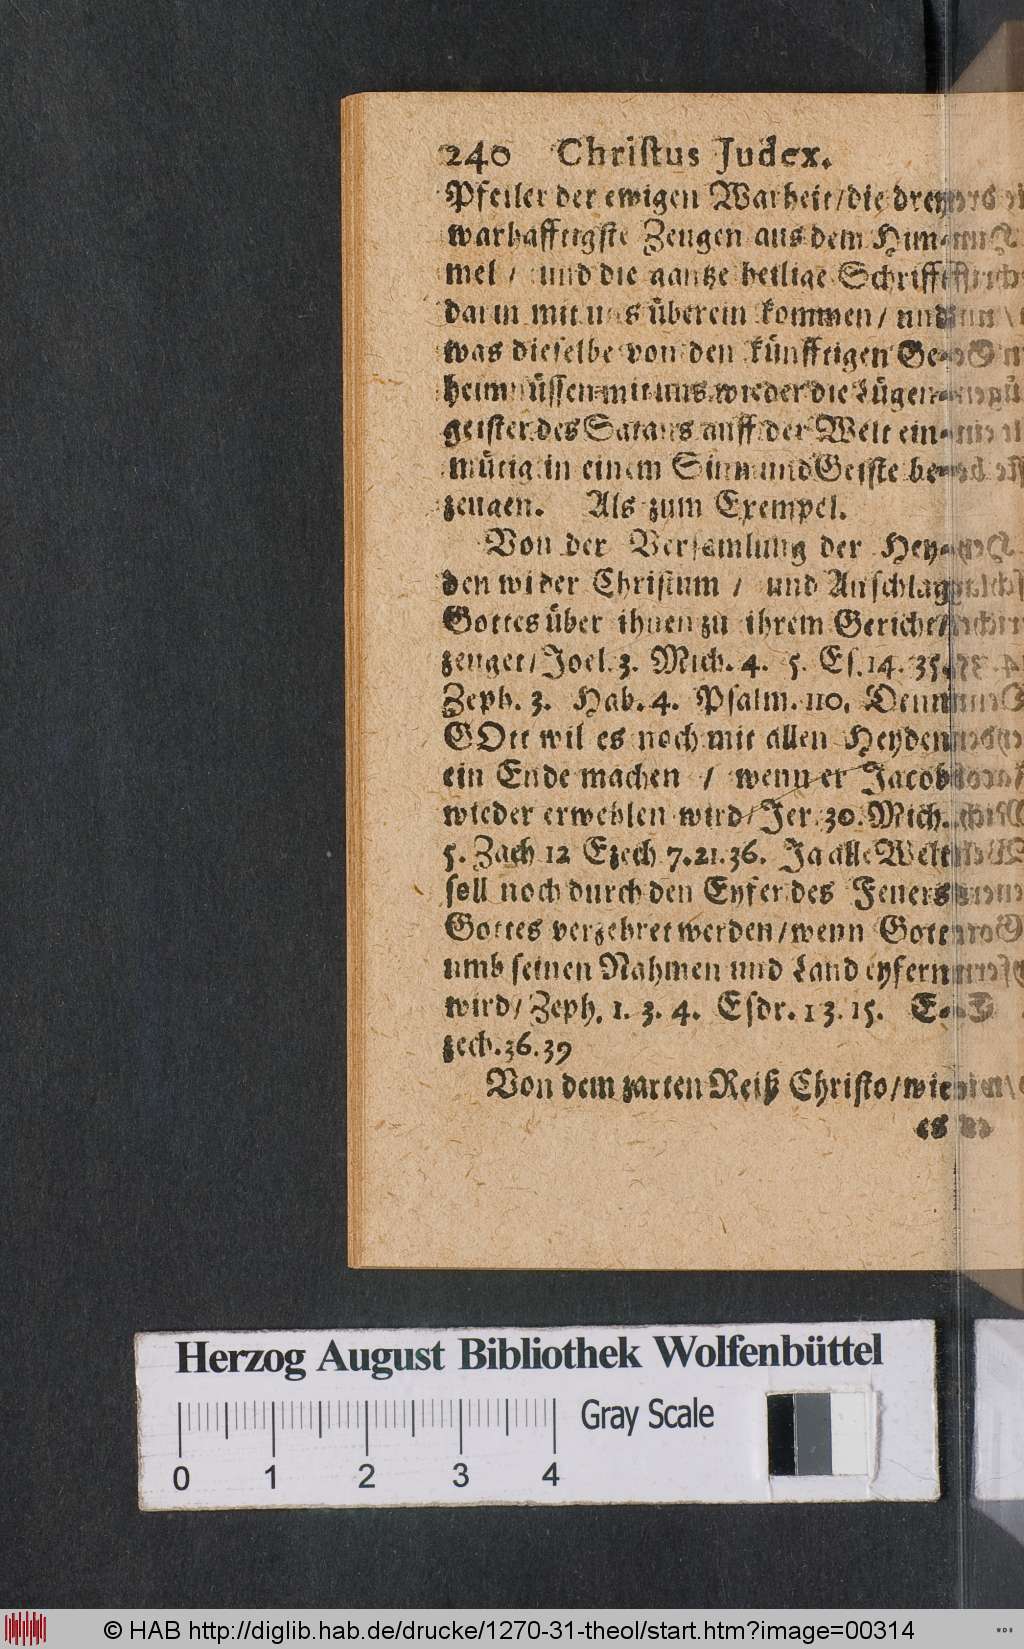 240 Christus Judex.
Pfeiler der ewigen Warheit/die drey
warhafftigste Zeugen aus dem Him-
mel / und die gantze heilige Schrifft
darin mit uns überein kommen/ und
was dieselbe von den künfftigen Ge-
heimnüssen mit uns wieder die Lügen-
geister des Satans auff der Welt ein-
mütig in einem Sinn und Geiste be-
zeugen. Als zum Exempel.
Von der Versamlung der Hey-
den wider Christum / und Anschlag
Gottes über ihnen zu ihrem Gerichte/
zeuget/Joel. 3. Mich. 4. 5. Es. 14. 35.
Zeph. 3. Hab. 4. Psalm. 110. Denn
GOtt wil es noch mit allen Heyden
ein Ende machen / wenn er Jacob
wieder erwehlen wird/Jer. 30. Mich.
5. Zach 12 Ezech 7. 21. 36. Ja alle Welt
soll noch durch den Eyfer des Feuers
Gottes verzehret werden/wenn Gott
umb seinen Nahmen und Land eyfern
wird/ Zeph. 1. 3. 4. Esdr. 13. 15. E-
zech. 36. 39
Von dem zarten Reiß Christo/wie
es
Herzog August Bibliothek Wolfenbüttel
Gray Scale
0 1 2 3 4
© HAB http://diglib.hab.de/drucke/1270-31-theol/start.htm?image=00314